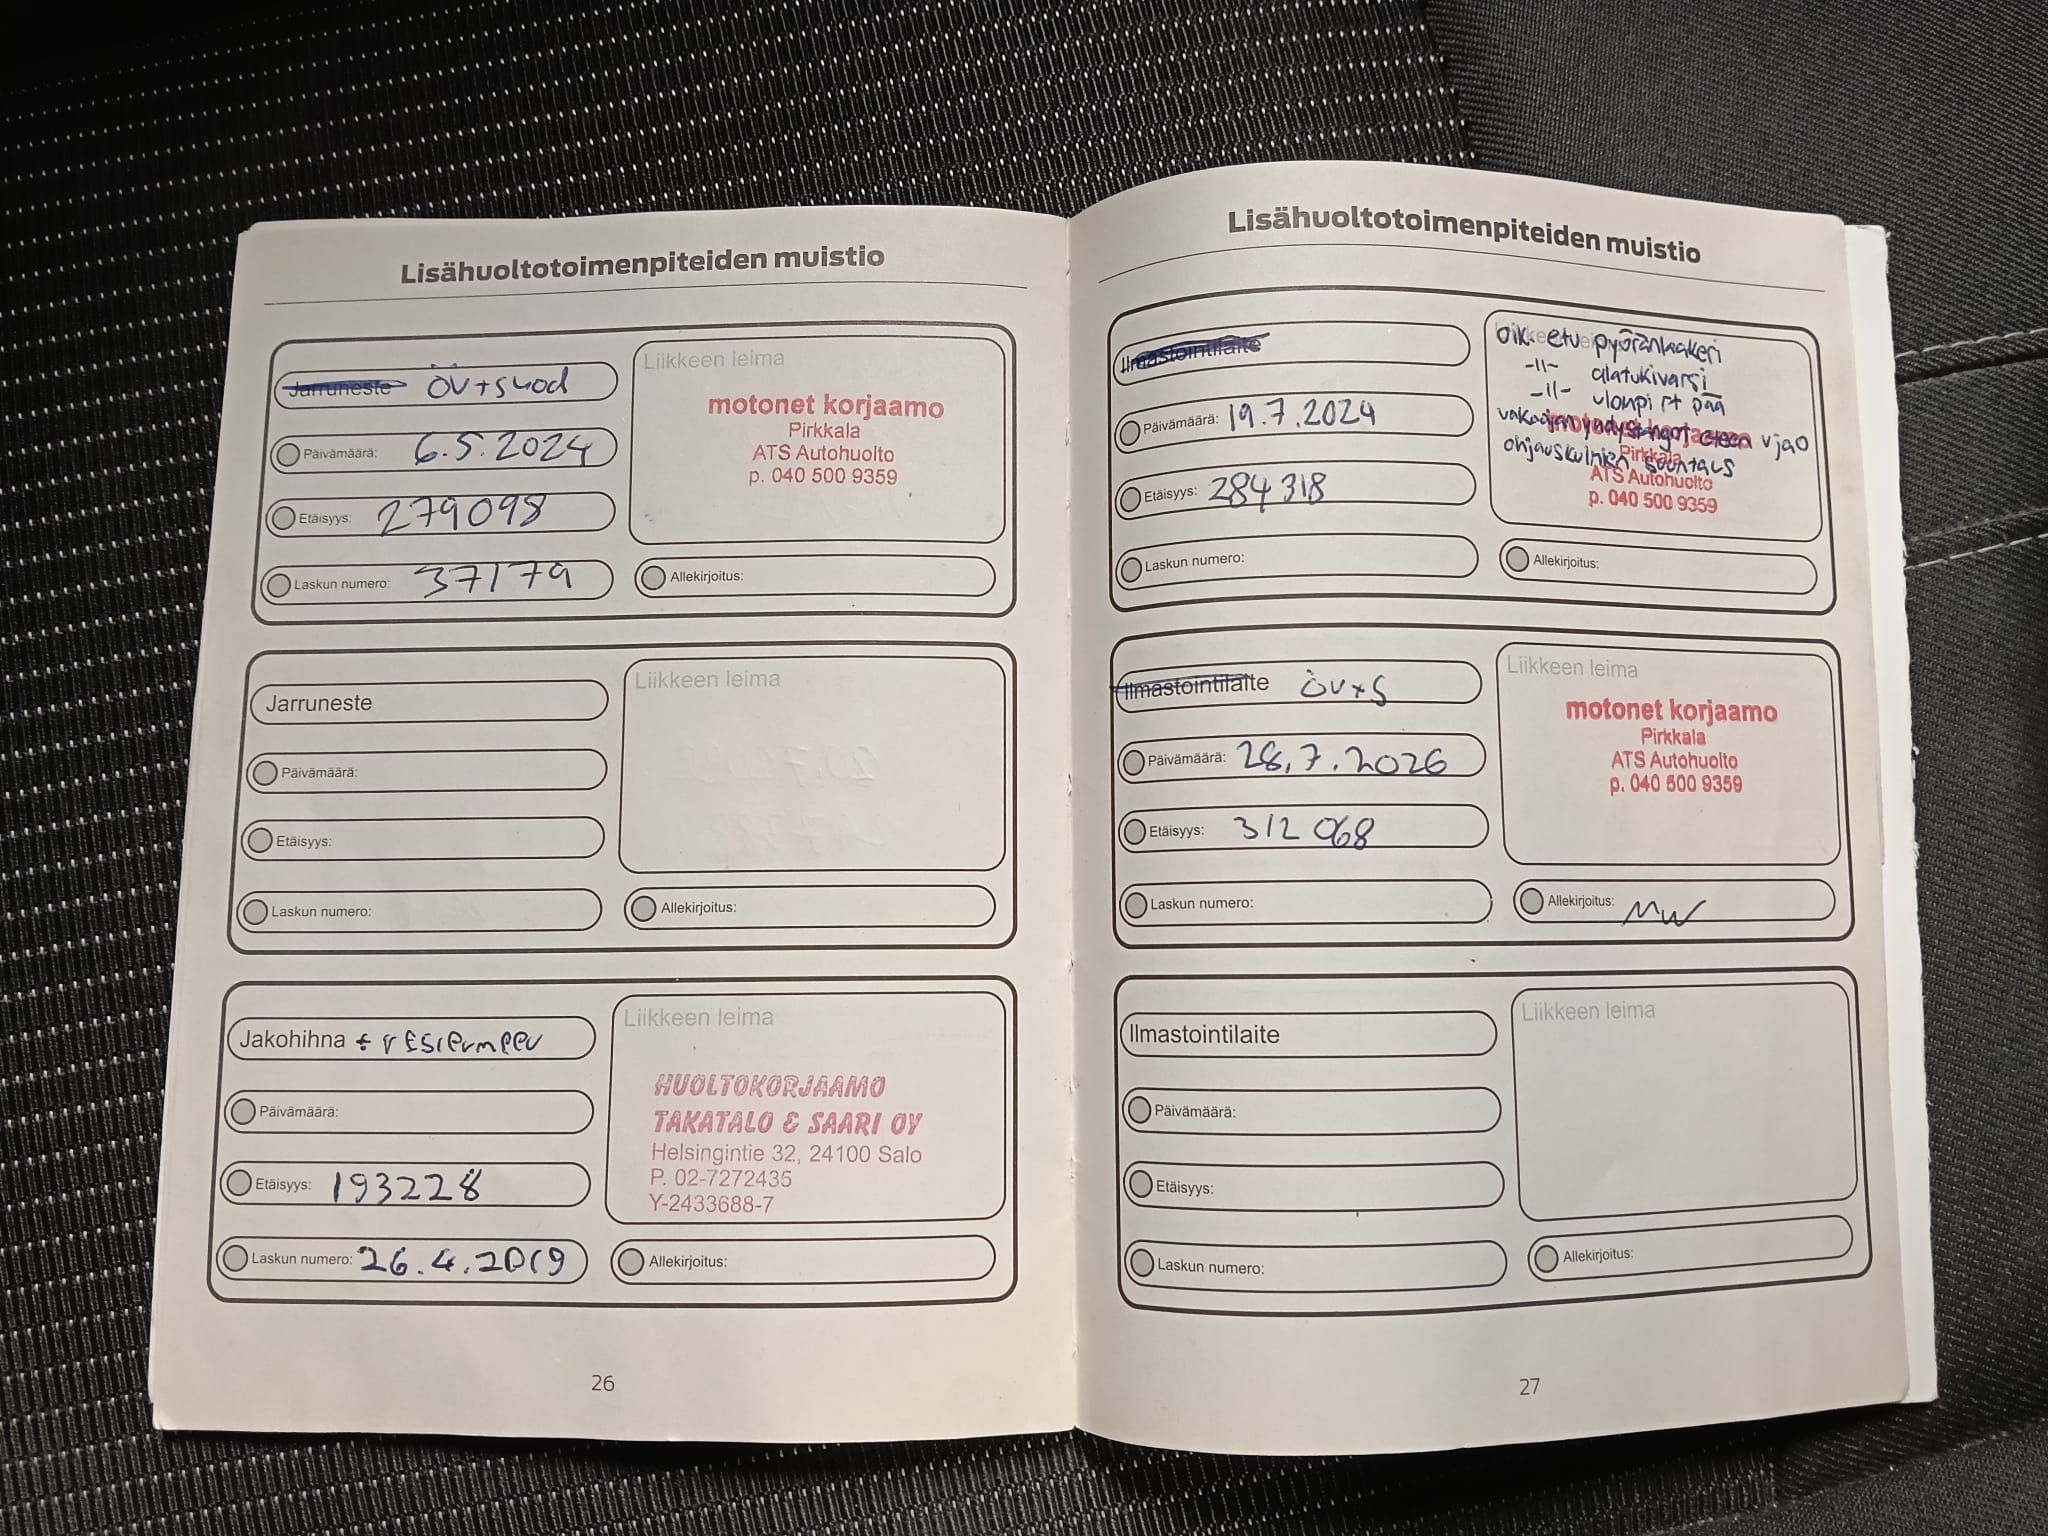 Lisähuoltotoimenpiteiden muistio
Jarruneste ÖV+suod
Päivämäärä: 6.5.2024
Etäisyys: 279098
Laskun numero: 37179
Liikkeen leima
motonet korjaamo
Pirkkala
ATS Autohuolto
p. 040 500 9359
Allekirjoitus:
Jarruneste
Päivämäärä:
Etäisyys:
Laskun numero:
Liikkeen leima
Allekirjoitus:
Jakohihna +
Päivämäärä:
Etäisyys: 193228
Laskun numero: 26.4.2019
Liikkeen leima
HUOLTOKORJAAMO
TAKATALO & SAARI OY
Helsingintie 32, 24100 Salo
P. 02-7272435
Y-2433688-7
Allekirjoitus:
26
Lisähuoltotoimenpiteiden muistio
Ilmastointilaite
Päivämäärä: 19.7.2024
Etäisyys: 284318
Laskun numero:
oik. etu pyöränlaakeri
-11- alatukivarsi
-11- ulompi rt pää
vakaajan yhdystangot eteen v ja o
ohjauskulmien suuntaus
motonet korjaamo
Pirkkala
ATS Autohuolto
p. 040 500 9359
Allekirjoitus:
Ilmastointilaite ÖV+S
Päivämäärä: 28.7.2026
Etäisyys: 312 068
Laskun numero:
Liikkeen leima
motonet korjaamo
Pirkkala
ATS Autohuolto
p. 040 500 9359
Allekirjoitus:
Ilmastointilaite
Päivämäärä:
Etäisyys:
Laskun numero:
Liikkeen leima
Allekirjoitus:
27